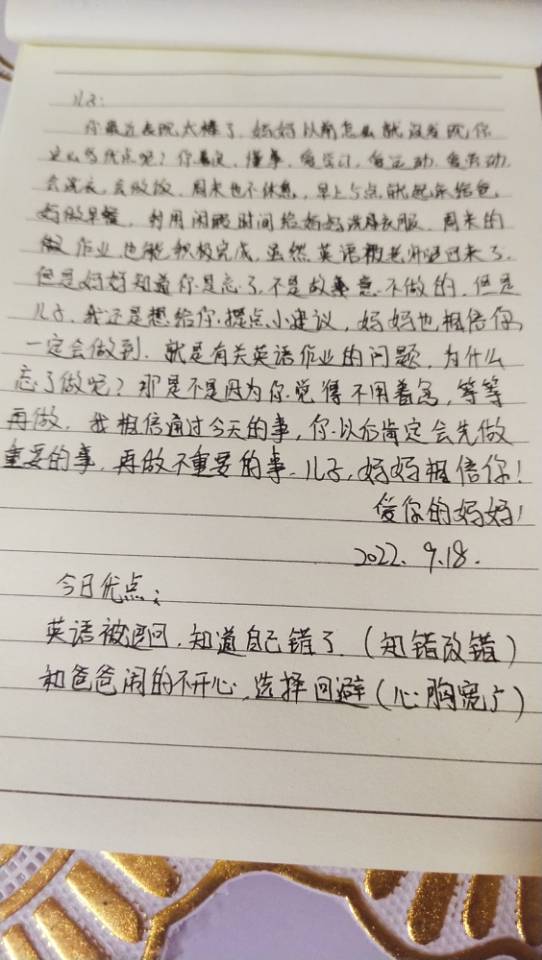 儿子:
你最近表现太棒了,妈妈以前怎么就没发现你
这么多优点呢?你善良、懂事、爱学习、爱运动、爱劳动,
会洗衣、会做饭,周末也不休息,早上5点就起来给爸
妈做早餐,利用闲暇时间给妈妈洗床衣服,周末的
做作业也能积极完成,虽然英语被老师退回来了,
但是妈妈知道你是忘了,不是故意不做的,但是
儿子,我还是想给你提点小建议,妈妈也相信你
一定会做到,就是有关英语作业的问题,为什么
忘了做呢?那是不是因为你觉得不用着急,等等
再做,我相信通过今天的事,你以后肯定会先做
重要的事,再做不重要的事。儿子,妈妈相信你!
爱你的妈妈!
2022.9.18.
今日优点:
英语被退回,知道自己错了(知错改错)
和爸爸闹的不开心,选择回避(心胸宽广)